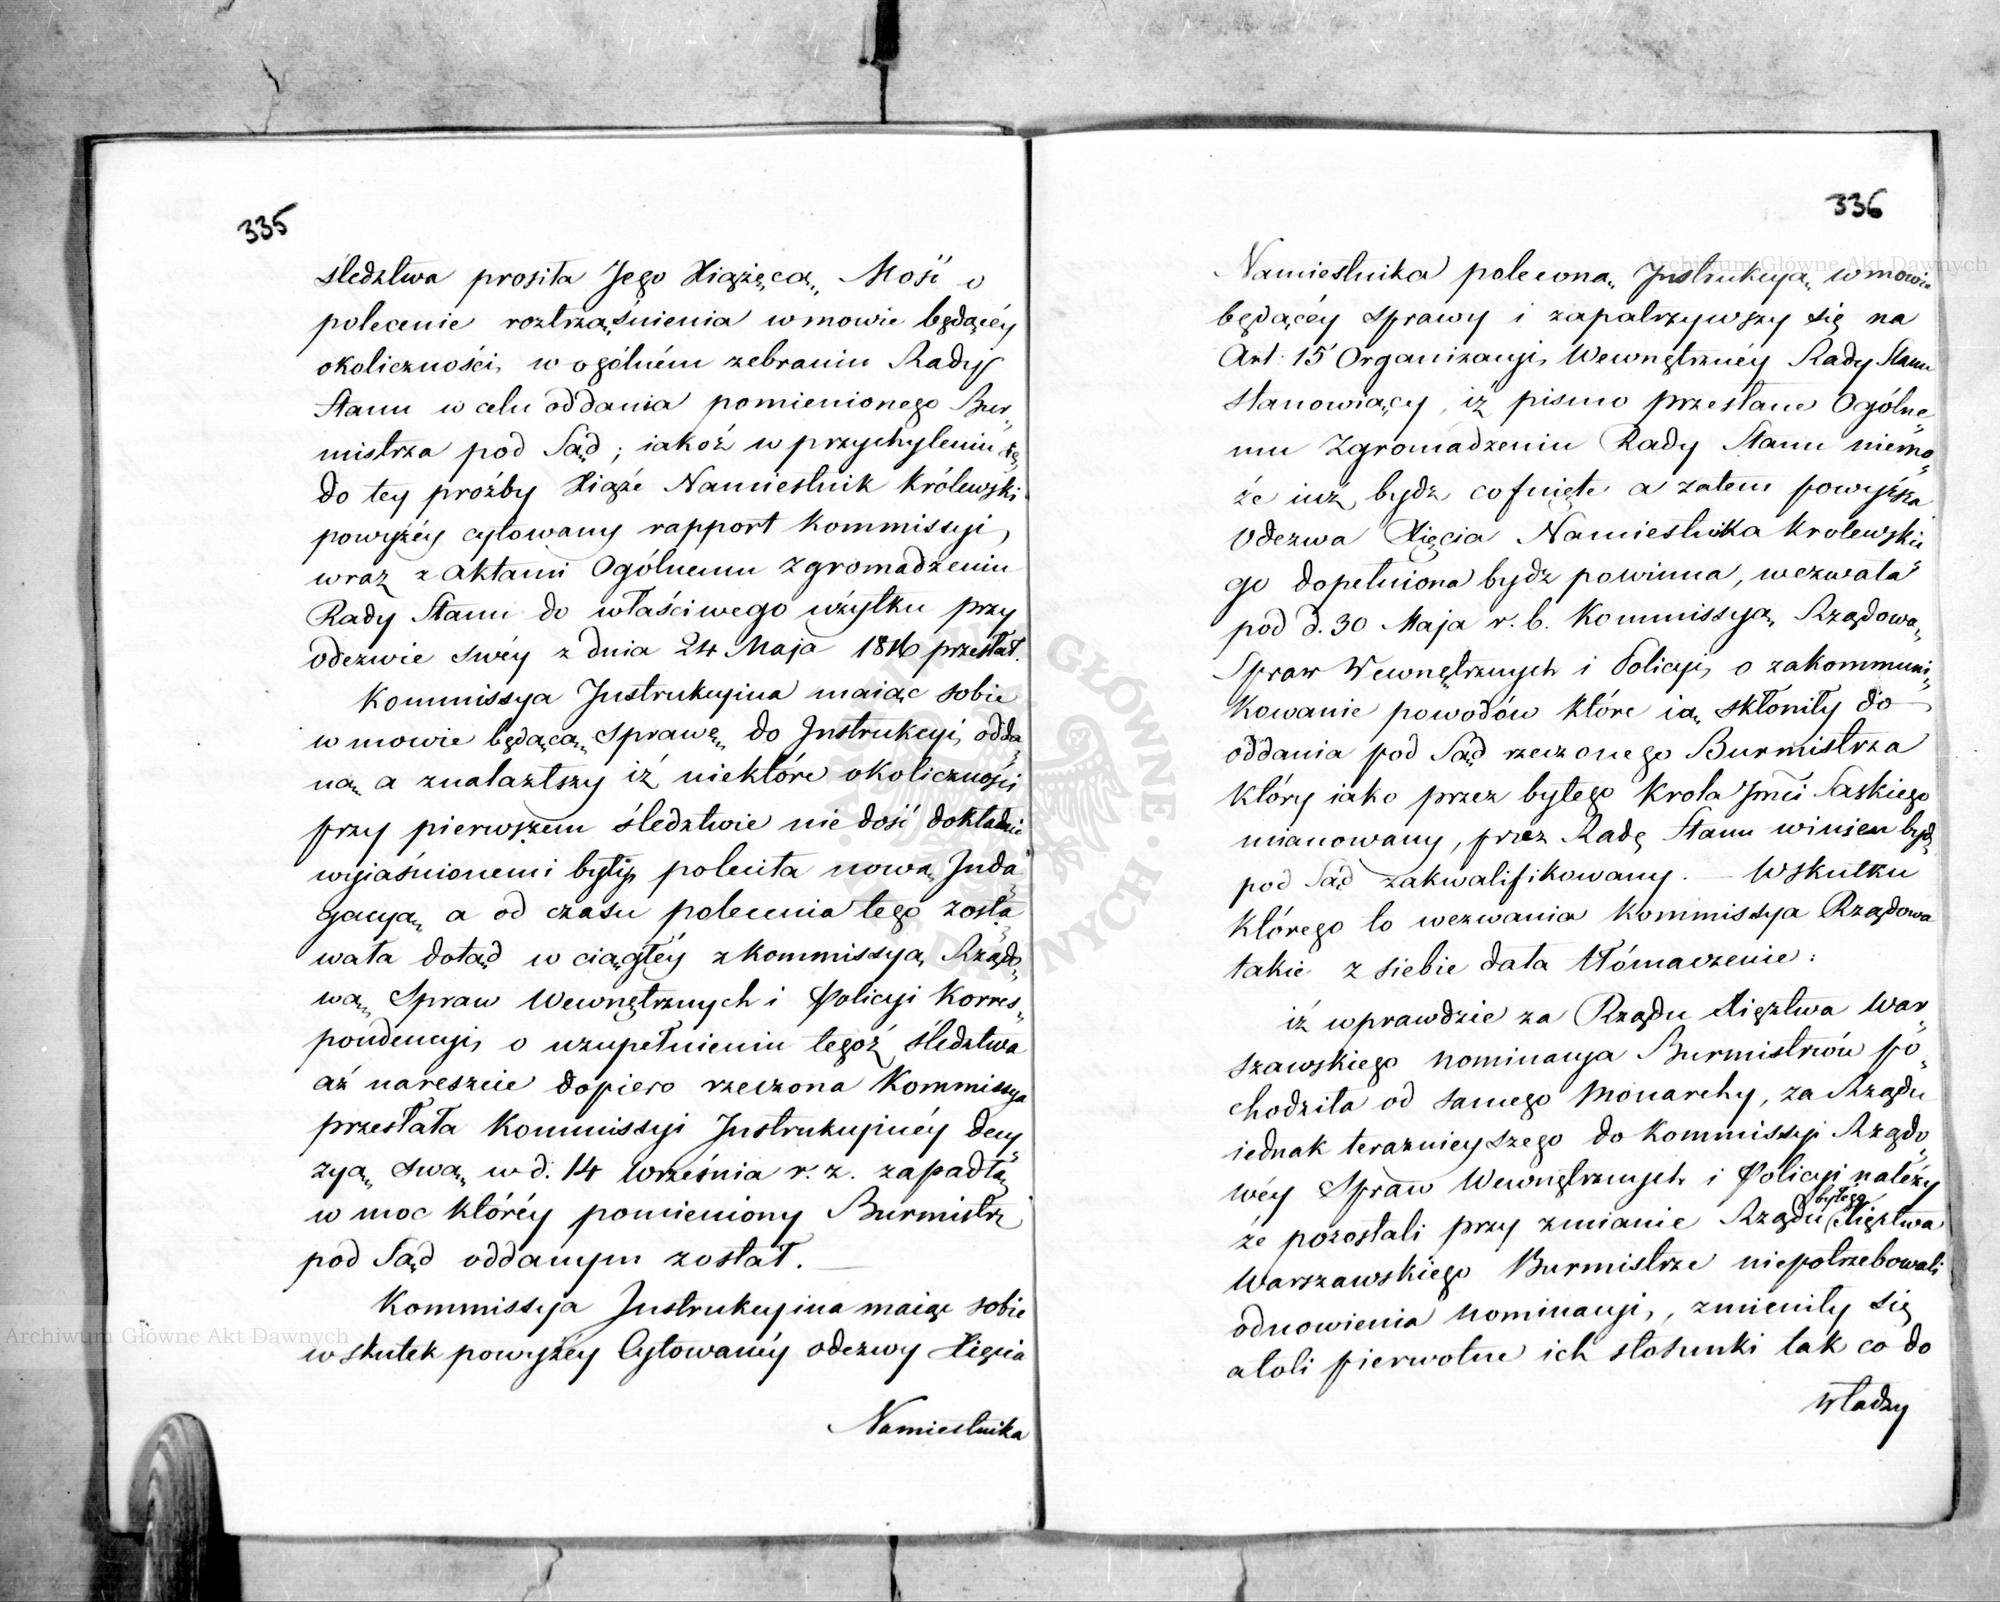 335
śledztwa prosiła Jego Xiążęcą Mość o
polecenie roztrząśnienia w mowie będącéy
okoliczności, w ogólném zebraniu Rady
Stanu w celu oddania pomienionego Bur-
mistrza pod Sąd; iakoż w przychyleniu się
do tey prożby Xiąże Namiestnik Królewski
powyżéy cytowany rapport Kommissyi,
wraz z aktami Ogólnemu Zgromadzeniu
Rady Stanu do właściwego użytku przy
odezwie swéy z dnia 24 Maja 1816 przesłał.
Kommissya Instrukcyina maiąc sobie
w mowie będącą sprawę do Instrukcyi odda-
ną a znalazłszy iż niektóre okoliczności
przy pierwszem śledztwie nie dość dokładnie
wyiaśnionemi były, poleciła nową Inda-
gacyą a od czasu polecenia tego zosta-
wała dotąd w ciągłéy z Kommissyą Rządo-
wą Spraw Wewnętrznych i Policyi Korres-
pondencyi, o uzupełnieniu tegoż śledztwa
aż nareszcie dopiero rzeczona Kommissya
przesłała Kommissyi Instrukcyinéy decy-
zyą swą w d. 14 Września r. z. zapadłą
w moc któréy pomieniony Burmistrz
pod Sąd oddanym został. —
Kommissyia Instrukcyina maiąc sobie
w skutek powyżéy Cytowanéy odezwy Xięcia
Namiestnika
336
Namiestnika poleconą Instrukcyą w mowie
będącéy sprawy i zapatrzywszy się na
Art: 15 Organizacyi Wewnętrznéy Rady Stanu
stanowiący, iż pismo przesłane Ogólne-
mu Zgromadzeniu Rady Stanu niemo-
że iuż bydz cofnięte a zatem powyższa
Odezwa Xięcia Namiestnika Krolewskie-
go dopełniona bydz powinna, wezwała
pod d. 30 Maja r. b. Kommissyą Rządową
Spraw Wewnętrznych i Policyi, o zakommuni-
kowanie powodów które ią skłoniły do
oddania pod Sąd rzeczonego Burmistrza
który iako przez byłego Krola Jmći Saskiego
mianowany, przez Radę Stanu winien bydz
pod Sąd zakwalifikowany. — W skutku
którego to wezwania Kommissya Rządowa
takie z siebie dała tłómaczenie:
iż wprawdzie za Rządu Xięztwa War-
szawskiego nominacya Burmistrzów po-
chodziła od samego Monarchy, za Rządu
iednak teraznieyszego do Kommissyi Rządo-
wéy Spraw Wewnętrznych i Policyi należy
że pozostali przy zmianie Rządu byłego Xięztwa
Warszawskiego Burmistrze niepotrzebowali
odnowienia nominacyi, zmieniły się
atoli pierwotne ich stosunki tak co do
władzy
Archiwum Główne Akt Dawnych
Archiwum Główne Akt Dawnych